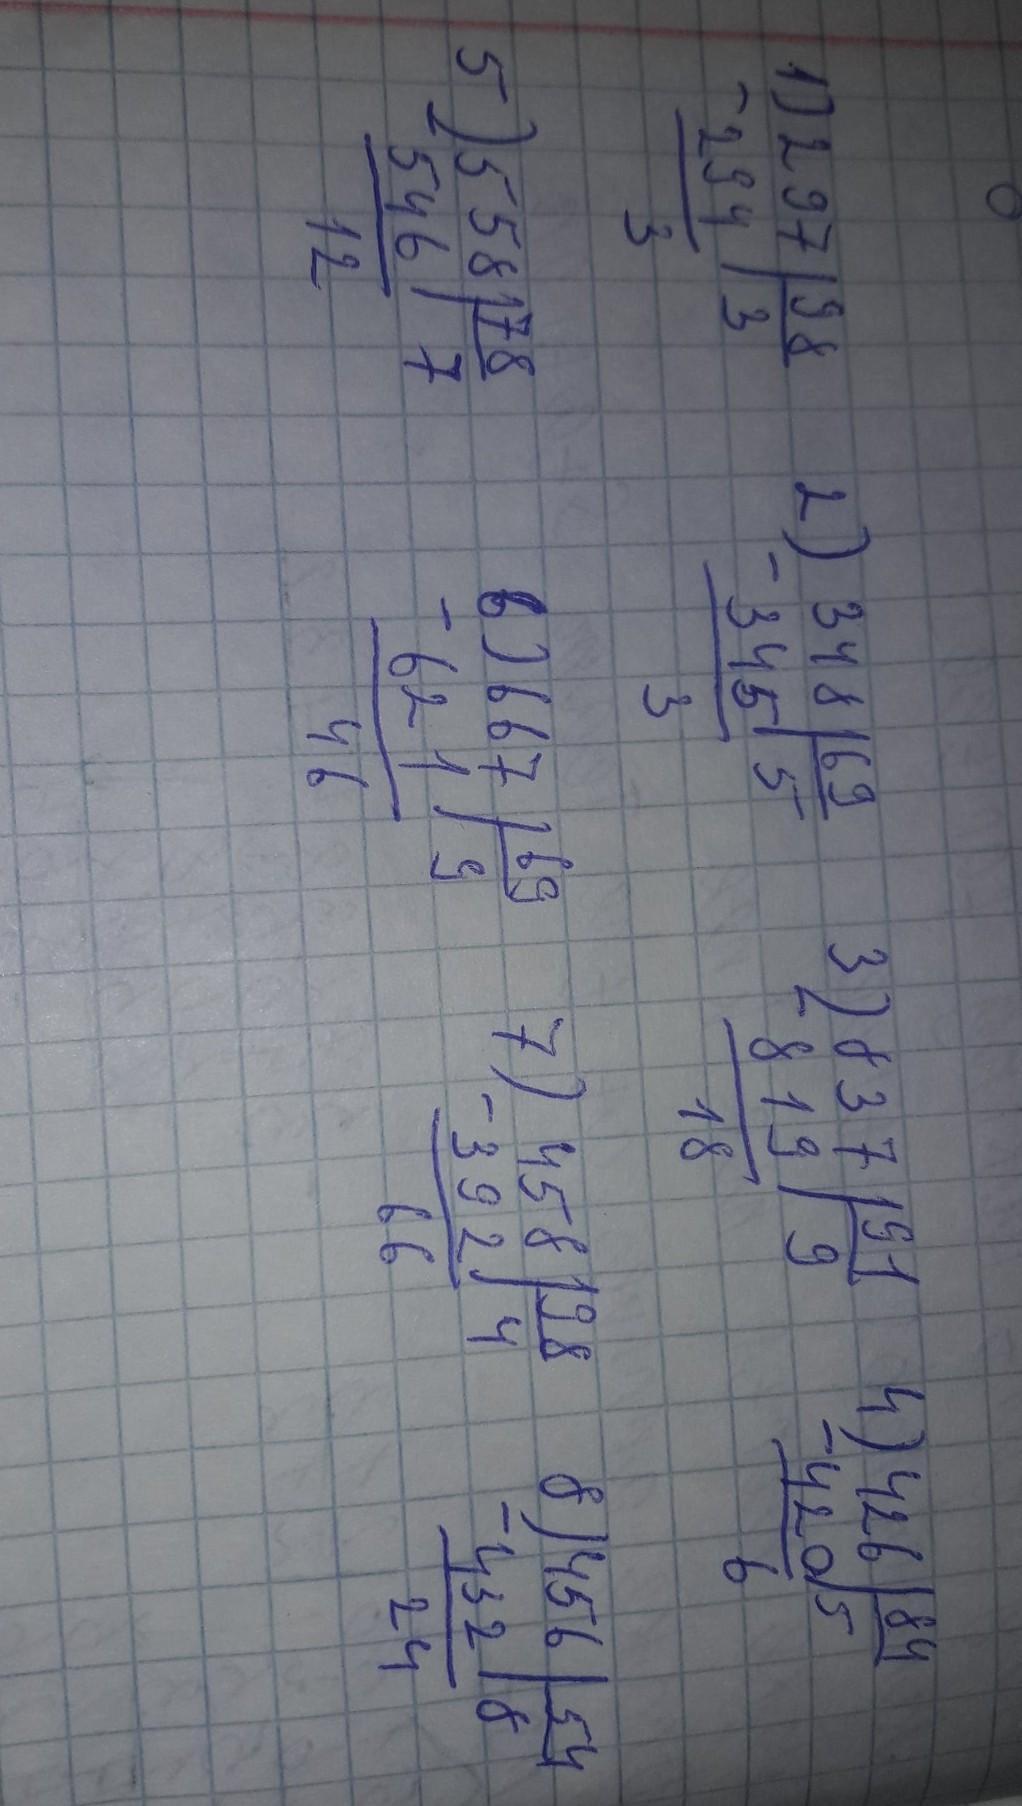 1) 297 | 98 2) 348 | 69 3) 837 | 91 4) 426 | 84
- 294 | 3 - 345 | 5 - 819 | 9 - 420 | 5
3 3 18 6
5) 558 | 78 6) 667 | 69 7) 458 | 98 8) 456 | 54
546 | 7 - 621 | 9 - 392 | 4 - 432 | 8
12 46 66 24